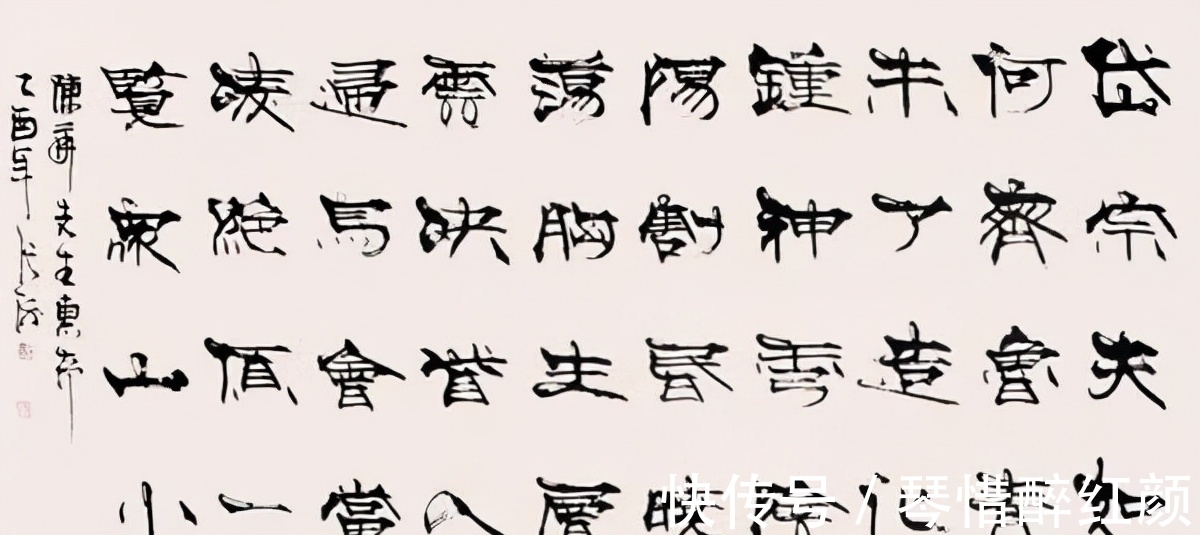 岱宗夫如
何齊魯青
未了造化
鍾神秀陰
陽割昏曉
蕩胸生層
雲決眥入
歸鳥會當
凌絕頂一
覽眾山小
陳 先生惠存
乙酉年 張海
快传号 / 琴惜醉红颜